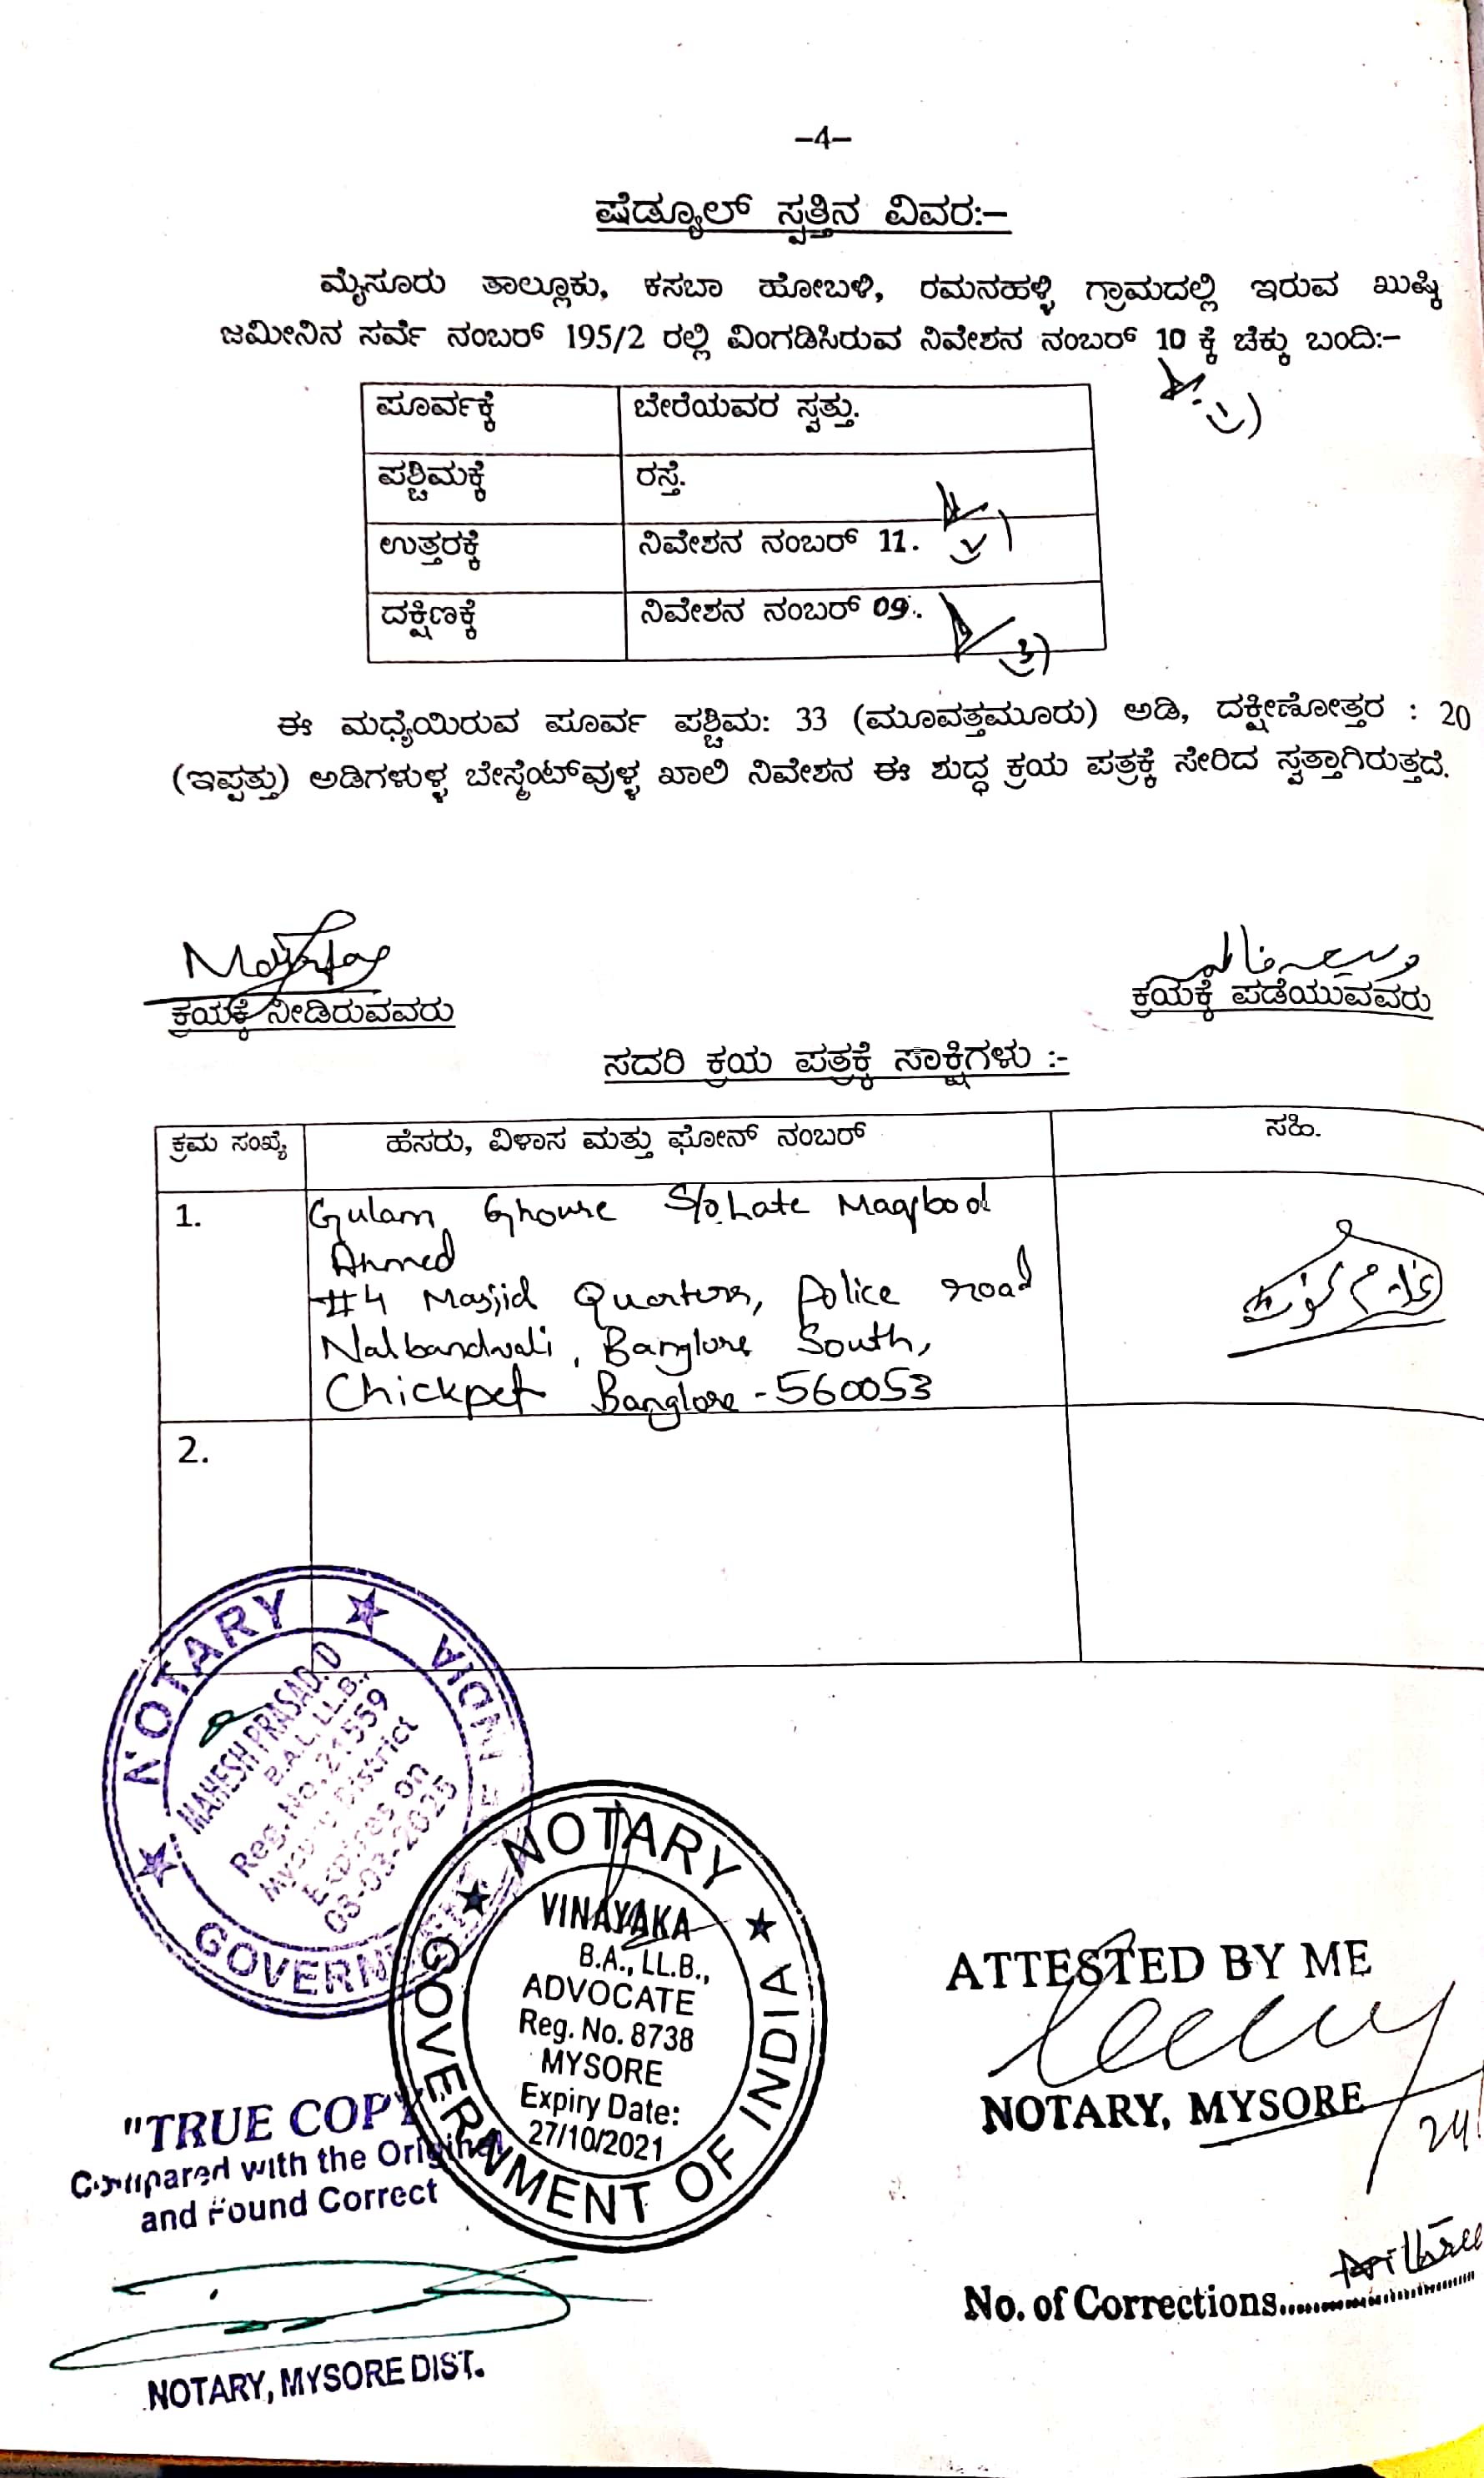 –4–
ಷೆಡ್ಯೂಲ್ ಸ್ವತ್ತಿನ ವಿವರ:–
ಮೈಸೂರು ತಾಲ್ಲೂಕು, ಕಸಬಾ ಹೋಬಳಿ, ರಮನಹಳ್ಳಿ ಗ್ರಾಮದಲ್ಲಿ ಇರುವ ಖುಷ್ಕಿ
ಜಮೀನಿನ ಸರ್ವೆ ನಂಬರ್ 195/2 ರಲ್ಲಿ ವಿಂಗಡಿಸಿರುವ ನಿವೇಶನ ನಂಬರ್ 10 ಕ್ಕೆ ಚೆಕ್ಕು ಬಂದಿ:–
ಪೂರ್ವಕ್ಕೆ ಬೇರೆಯವರ ಸ್ವತ್ತು.
ಪಶ್ಚಿಮಕ್ಕೆ ರಸ್ತೆ.
ಉತ್ತರಕ್ಕೆ ನಿವೇಶನ ನಂಬರ್ 11.
ದಕ್ಷಿಣಕ್ಕೆ ನಿವೇಶನ ನಂಬರ್ 09.
ಈ ಮಧ್ಯೆಯಿರುವ ಪೂರ್ವ ಪಶ್ಚಿಮ: 33 (ಮೂವತ್ತಮೂರು) ಅಡಿ, ದಕ್ಷೀಣೋತ್ತರ : 20
(ಇಪ್ಪತ್ತು) ಅಡಿಗಳುಳ್ಳ ಬೇಸ್ಮೆಂಟ್‌ವುಳ್ಳ ಖಾಲಿ ನಿವೇಶನ ಈ ಶುದ್ಧ ಕ್ರಯ ಪತ್ರಕ್ಕೆ ಸೇರಿದ ಸ್ವತ್ತಾಗಿರುತ್ತದೆ.
ಕ್ರಯಕ್ಕೆ ನೀಡಿರುವವರು ಕ್ರಯಕ್ಕೆ ಪಡೆಯುವವರು
ಸದರಿ ಕ್ರಯ ಪತ್ರಕ್ಕೆ ಸಾಕ್ಷಿಗಳು :-
ಕ್ರಮ ಸಂಖ್ಯೆ ಹೆಸರು, ವಿಳಾಸ ಮತ್ತು ಫೋನ್ ನಂಬರ್ ಸಹಿ.
1. Gulam Ghouse S/o Late Maqbool
Ahmed
#4 Masjid Quarters, Police road
Nalbandwadi, Banglore South,
Chickpet Banglore - 560053
2.
NOTARY ★ INDIA ★ GOVERNMENT
MAHESH PRASAD. D
B.A.L, LL.B.,
Reg. No. 21559
Mysuru District
Expires on
03-03-2025
★ NOTARY ★ GOVERNMENT OF INDIA
VINAYAKA
B.A., LL.B.,
ADVOCATE
Reg. No. 8738
MYSORE
Expiry Date:
27/10/2021
ATTESTED BY ME
NOTARY, MYSORE
24
"TRUE COPY
Compared with the Original
and Found Correct
No. of Corrections
NOTARY, MYSORE DIST.